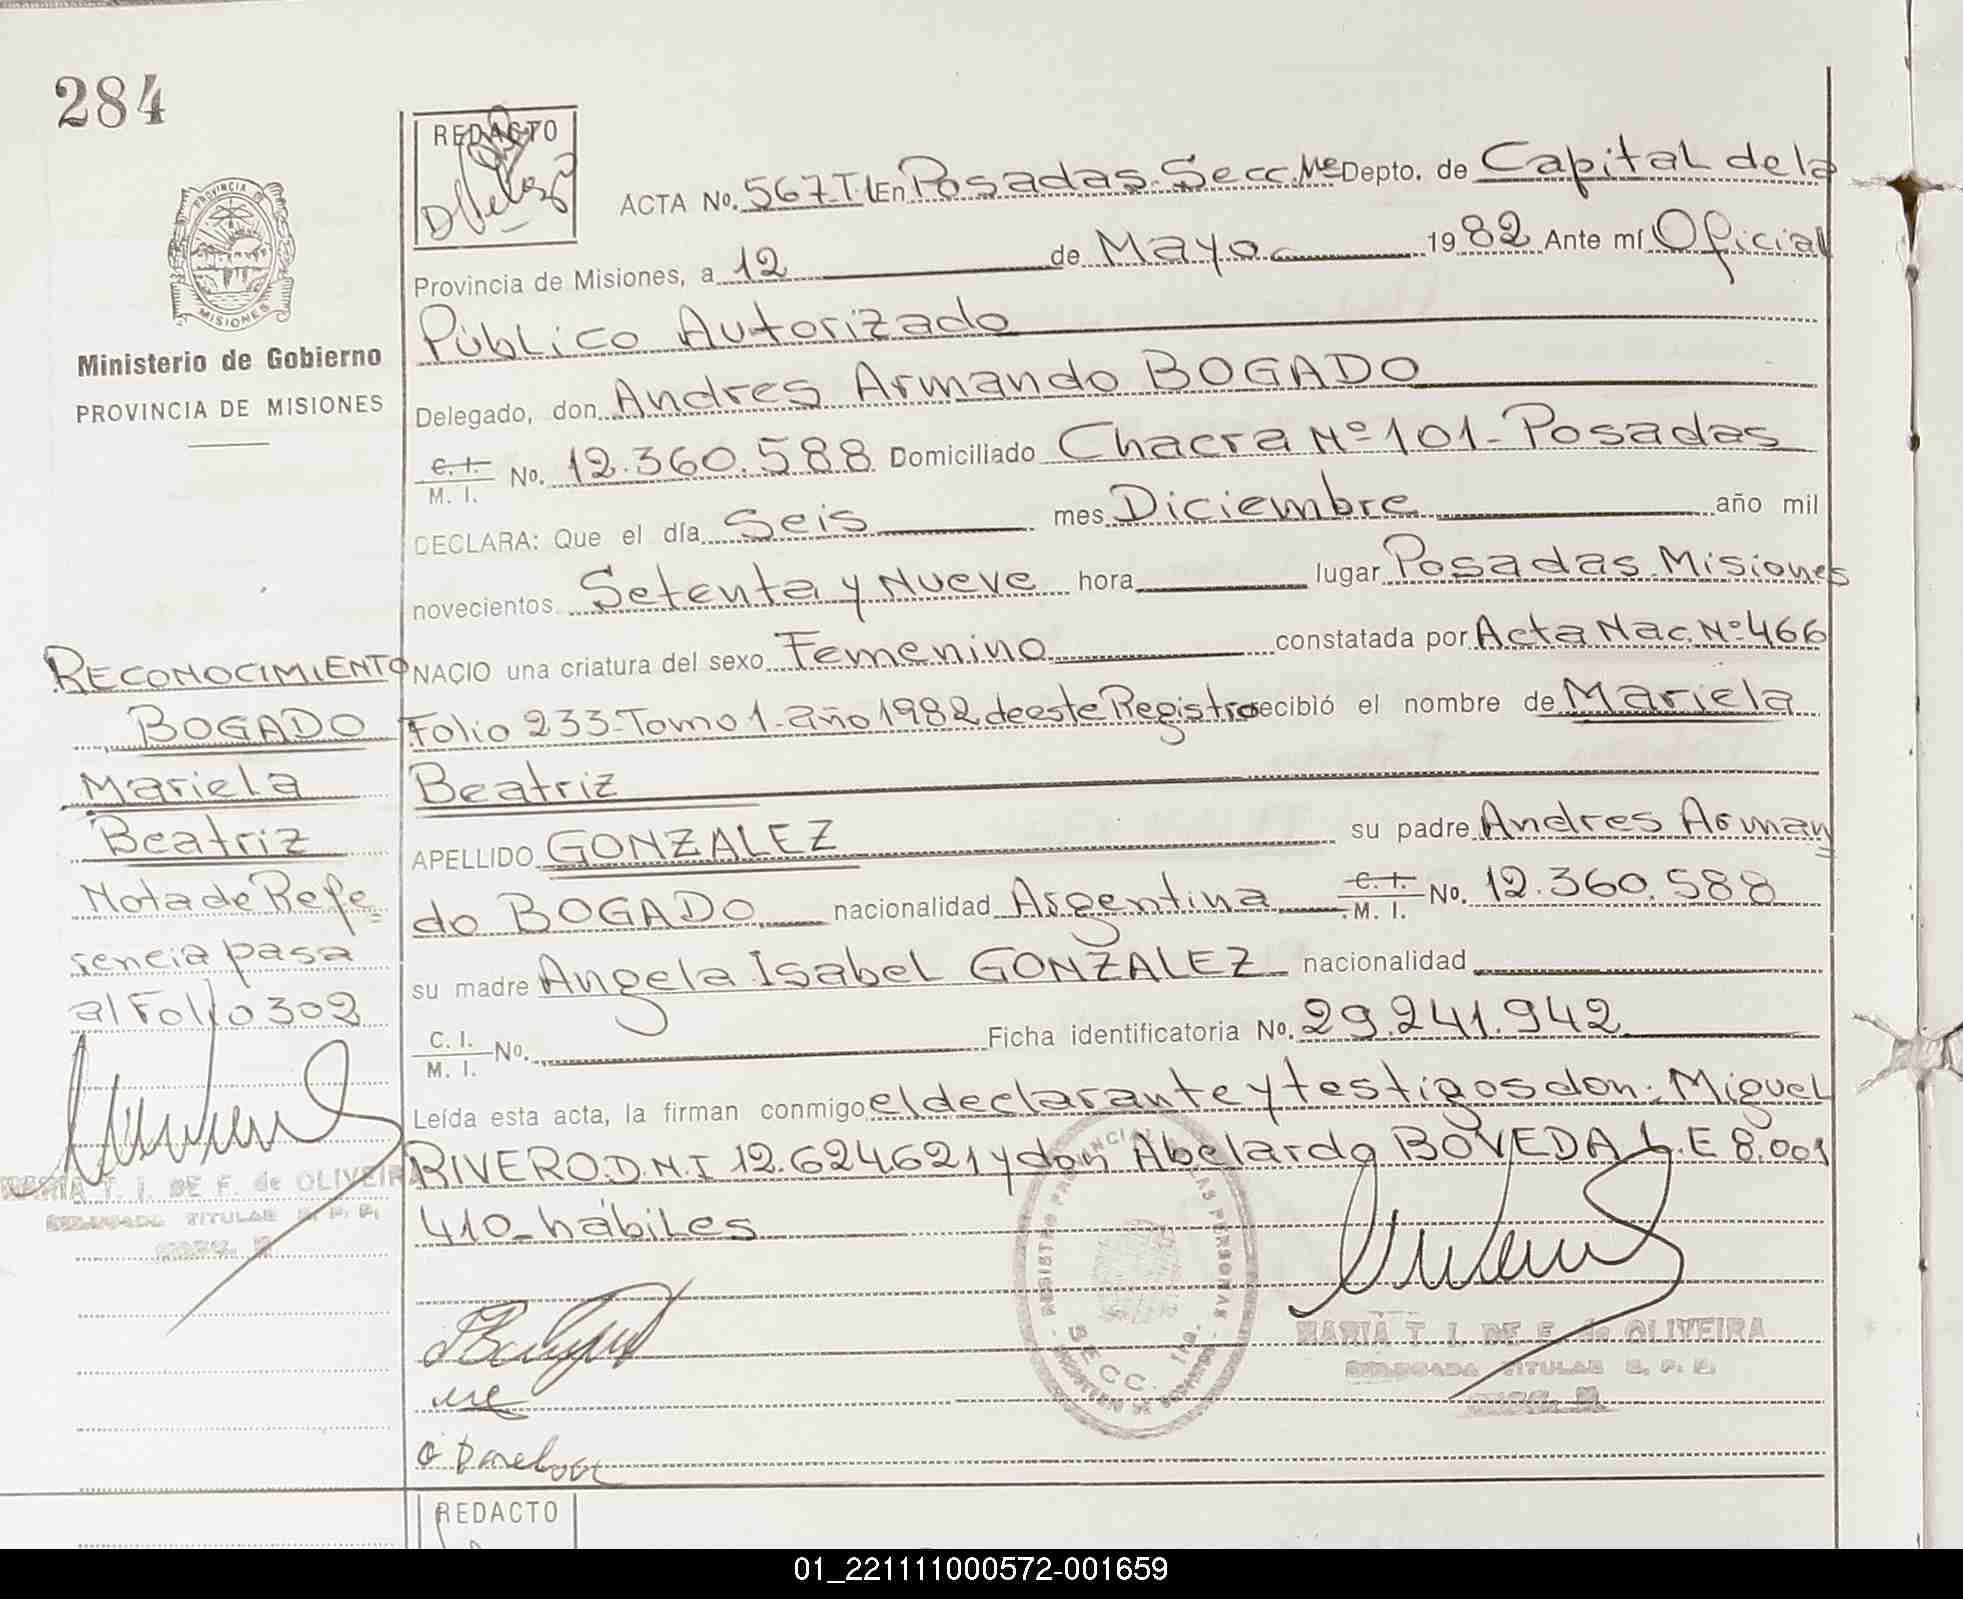 284
REDACTO
ACTA No. 567-T.I En Posadas-Secc. Depto. de Capital de la
Provincia de Misiones, a 12 de Mayo 1982 Ante mí Oficial
Público Autorizado
Delegado, don Andres Armando BOGADO
C. I. / M. I. No. 12.360.588 Domiciliado Chacra Nº 101-Posadas
DECLARA: Que el día Seis mes Diciembre año mil
novecientos Setenta y Nueve hora lugar Posadas-Misiones
NACIO una criatura del sexo Femenino constatada por Acta Nac. Nº 466
Folio 233-Tomo 1-año 1982 de este Registro recibió el nombre de Mariela
Beatriz
APELLIDO GONZALEZ su padre Andres Arman
do BOGADO nacionalidad Argentina C. I. / M. I. No. 12.360.588
su madre Angela Isabel GONZALEZ nacionalidad
C. I. / M. I. No. Ficha identificatoria No. 29.241.942
Leída esta acta, la firman conmigo el declarante y testigos don: Miguel
RIVERO D.N.I 12.624621 y don Abelardo BOVEDA L.E 8.001
410-hábiles
PROVINCIA DE
MISIONES
Ministerio de Gobierno
PROVINCIA DE MISIONES
RECONOCIMIENTO
BOGADO
Mariela
Beatriz
Nota de Refe=
rencia pasa
al Folio 302
MARIA T. I. DE F. de OLIVEIRA
DELEGADA TITULAR R. P. P.
SECC.
REGISTRO PROVINCIAL DE LAS PERSONAS
SECC. 1ra.
MARIA T. I. DE F. de OLIVEIRA
DELEGADA TITULAR R. P. P.
SECC.
REDACTO
01_221111000572-001659